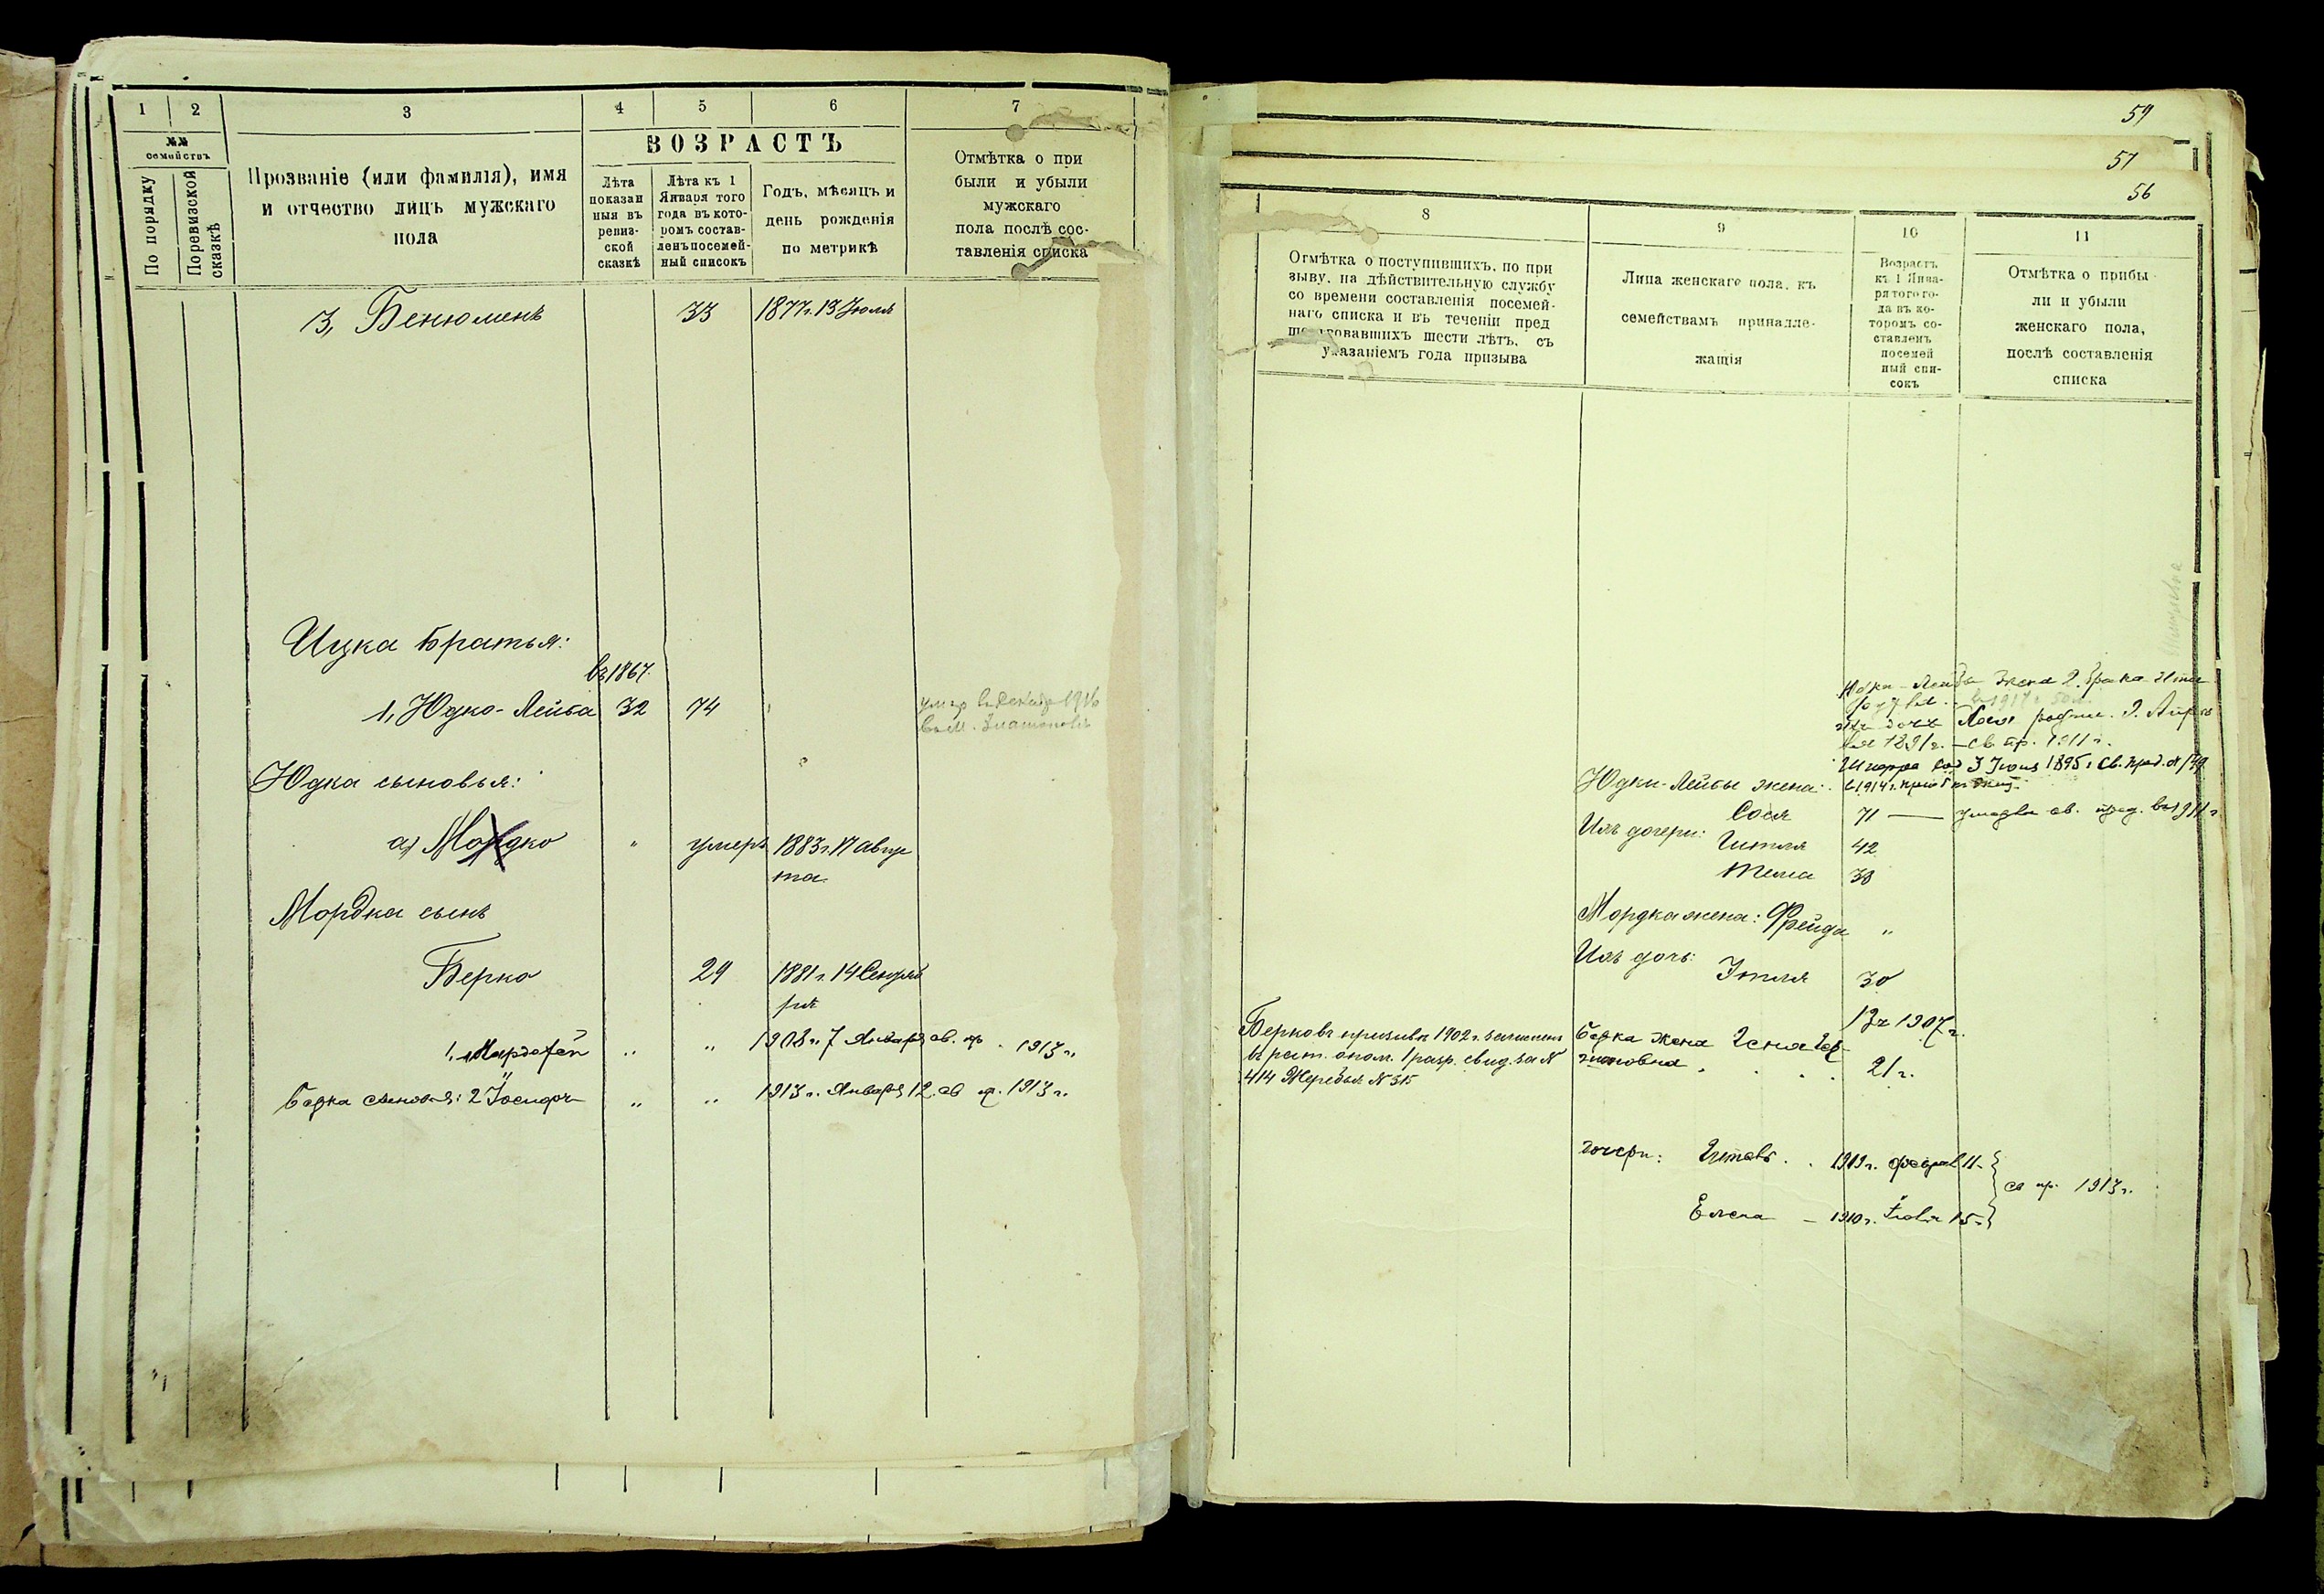 1 2 3 4 5 6 7
№№ семействъ
По порядку
По ревизской сказкѣ
Прозваніе (или фамилія), имя
и отчество лицъ мужскаго
пола
ВОЗРАСТЪ
Лѣта
показан
ныя въ
ревиз-
ской
сказкѣ
Лѣта къ 1
Января того
года въ кото-
ромъ состав-
ленъ посемей-
ный списокъ
Годъ, мѣсяцъ и
день рожденія
по метрикѣ
Отмѣтка о при
были и убыли
мужскаго
пола послѣ сос-
тавленія списка
3, Бенюменъ 33 1877 г. 13 Іюля
Ицка братья:
въ 1867.
1, Юдко-Лейба 32 74
умер въ 1916
Юдка сыновья:
а, Мордко " умеръ 1883 г. 17 авгус
та
Мордка сынъ
Берко 29 1881 г. 14 Сентяб
ря
1, Мардохей " " 1908 г. 7 Января св. пр. 1913 г.
Берка сыновья: 2 Іосифъ " " 1913 г. Января 12. св. пр. 1913 г.
59
57
56
8 9 10 11
Отмѣтка о поступившихъ, по при
зыву, на дѣйствительную службу
со времени составленія посемей-
наго списка и въ теченіи пред
шествовавшихъ шести лѣтъ, съ
указаніемъ года призыва
Лица женскаго пола, къ
семействамъ принадле-
жащія
Возрастъ
къ 1 Янва-
ря того го-
да въ ко-
торомъ со-
ставленъ
посемей
ный спи-
сокъ
Отмѣтка о прибы
ли и убыли
женскаго пола,
послѣ составленія
списка
Юдки-Лейбы жена 2 брака
1917 г.
дочь 2. Апрѣ
ля 1891 г. — св. пр. 1911 г.
3 Іюня 1895 г. св. пред. № 149
в 1914 г.
Юдки-Лейбы жена:
Сося 71 — умерла св. пред. в 1911 г
Ихъ дочери: Гитля 42
Тема 38
Мордка жена: Фрейда "
Ихъ дочь: Этля 30
Берко въ призывъ 1902 г. зачисленъ
въ рат. опол. 1 разр. свид. за №
414 Жеребья № 315
Берка жена
Въ 1907 г.
21 г.
дочери: 1909 г. феврал 11.
Елена — 1910 г. Іюля 15.
св пр. 1913 г.